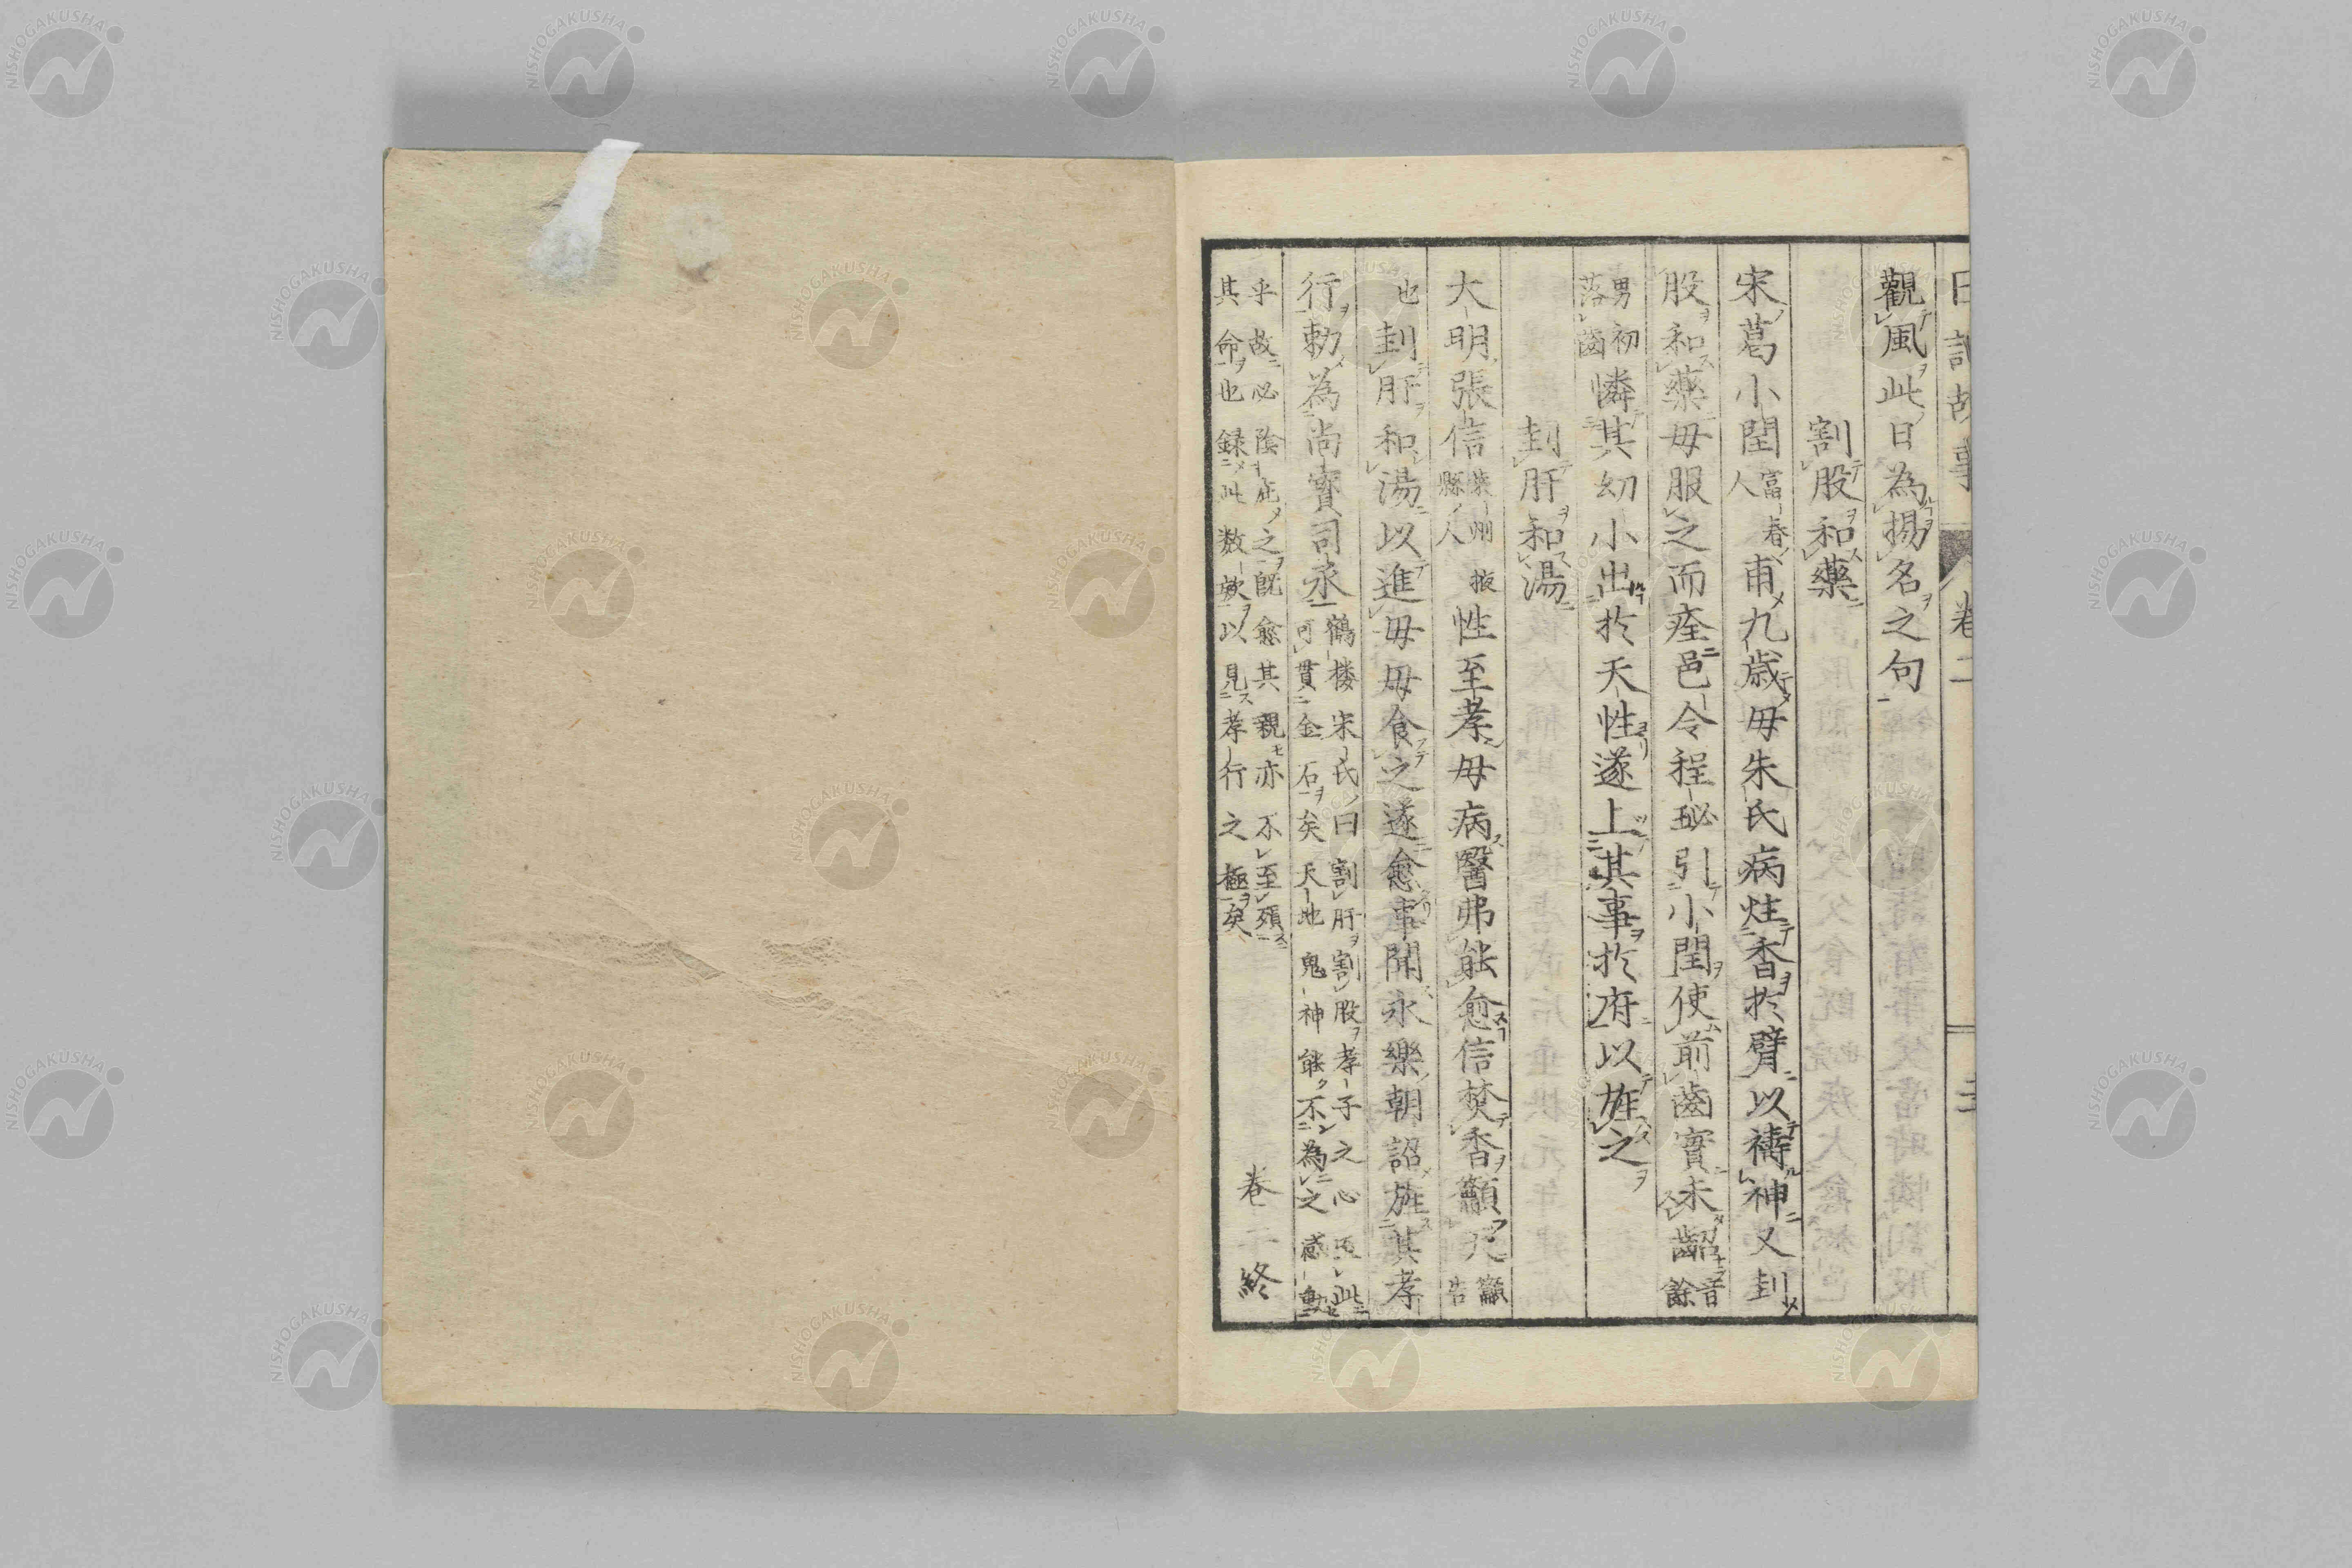 觀風此日為揚名之句
割股和藥
宋葛小閏富春人甫九歳母朱氏病炷香於臂以禱神又刲
股和藥母服之而痊邑令程珌引小閏使前齒實未齠音餘
男初落齒憐其幼小出於天性遂上其事於府以旌之
刲肝和湯
大明張信萊州掖縣人性至孝母病醫弗能愈信焚香籲天籲告
也刲肝和湯以進母母食之遂愈事聞永樂朝詔旌其孝
行勅為尚寳司丞鶴楼宋氏曰割肝割股孝子之心至此可貫金石矣天地鬼神能不為之感動
乎故必陰庇之既愈其親亦不至殞其命也録此数欵以見孝行之極矣
卷二終
日記故事 卷二
NISHOGAKUSHA